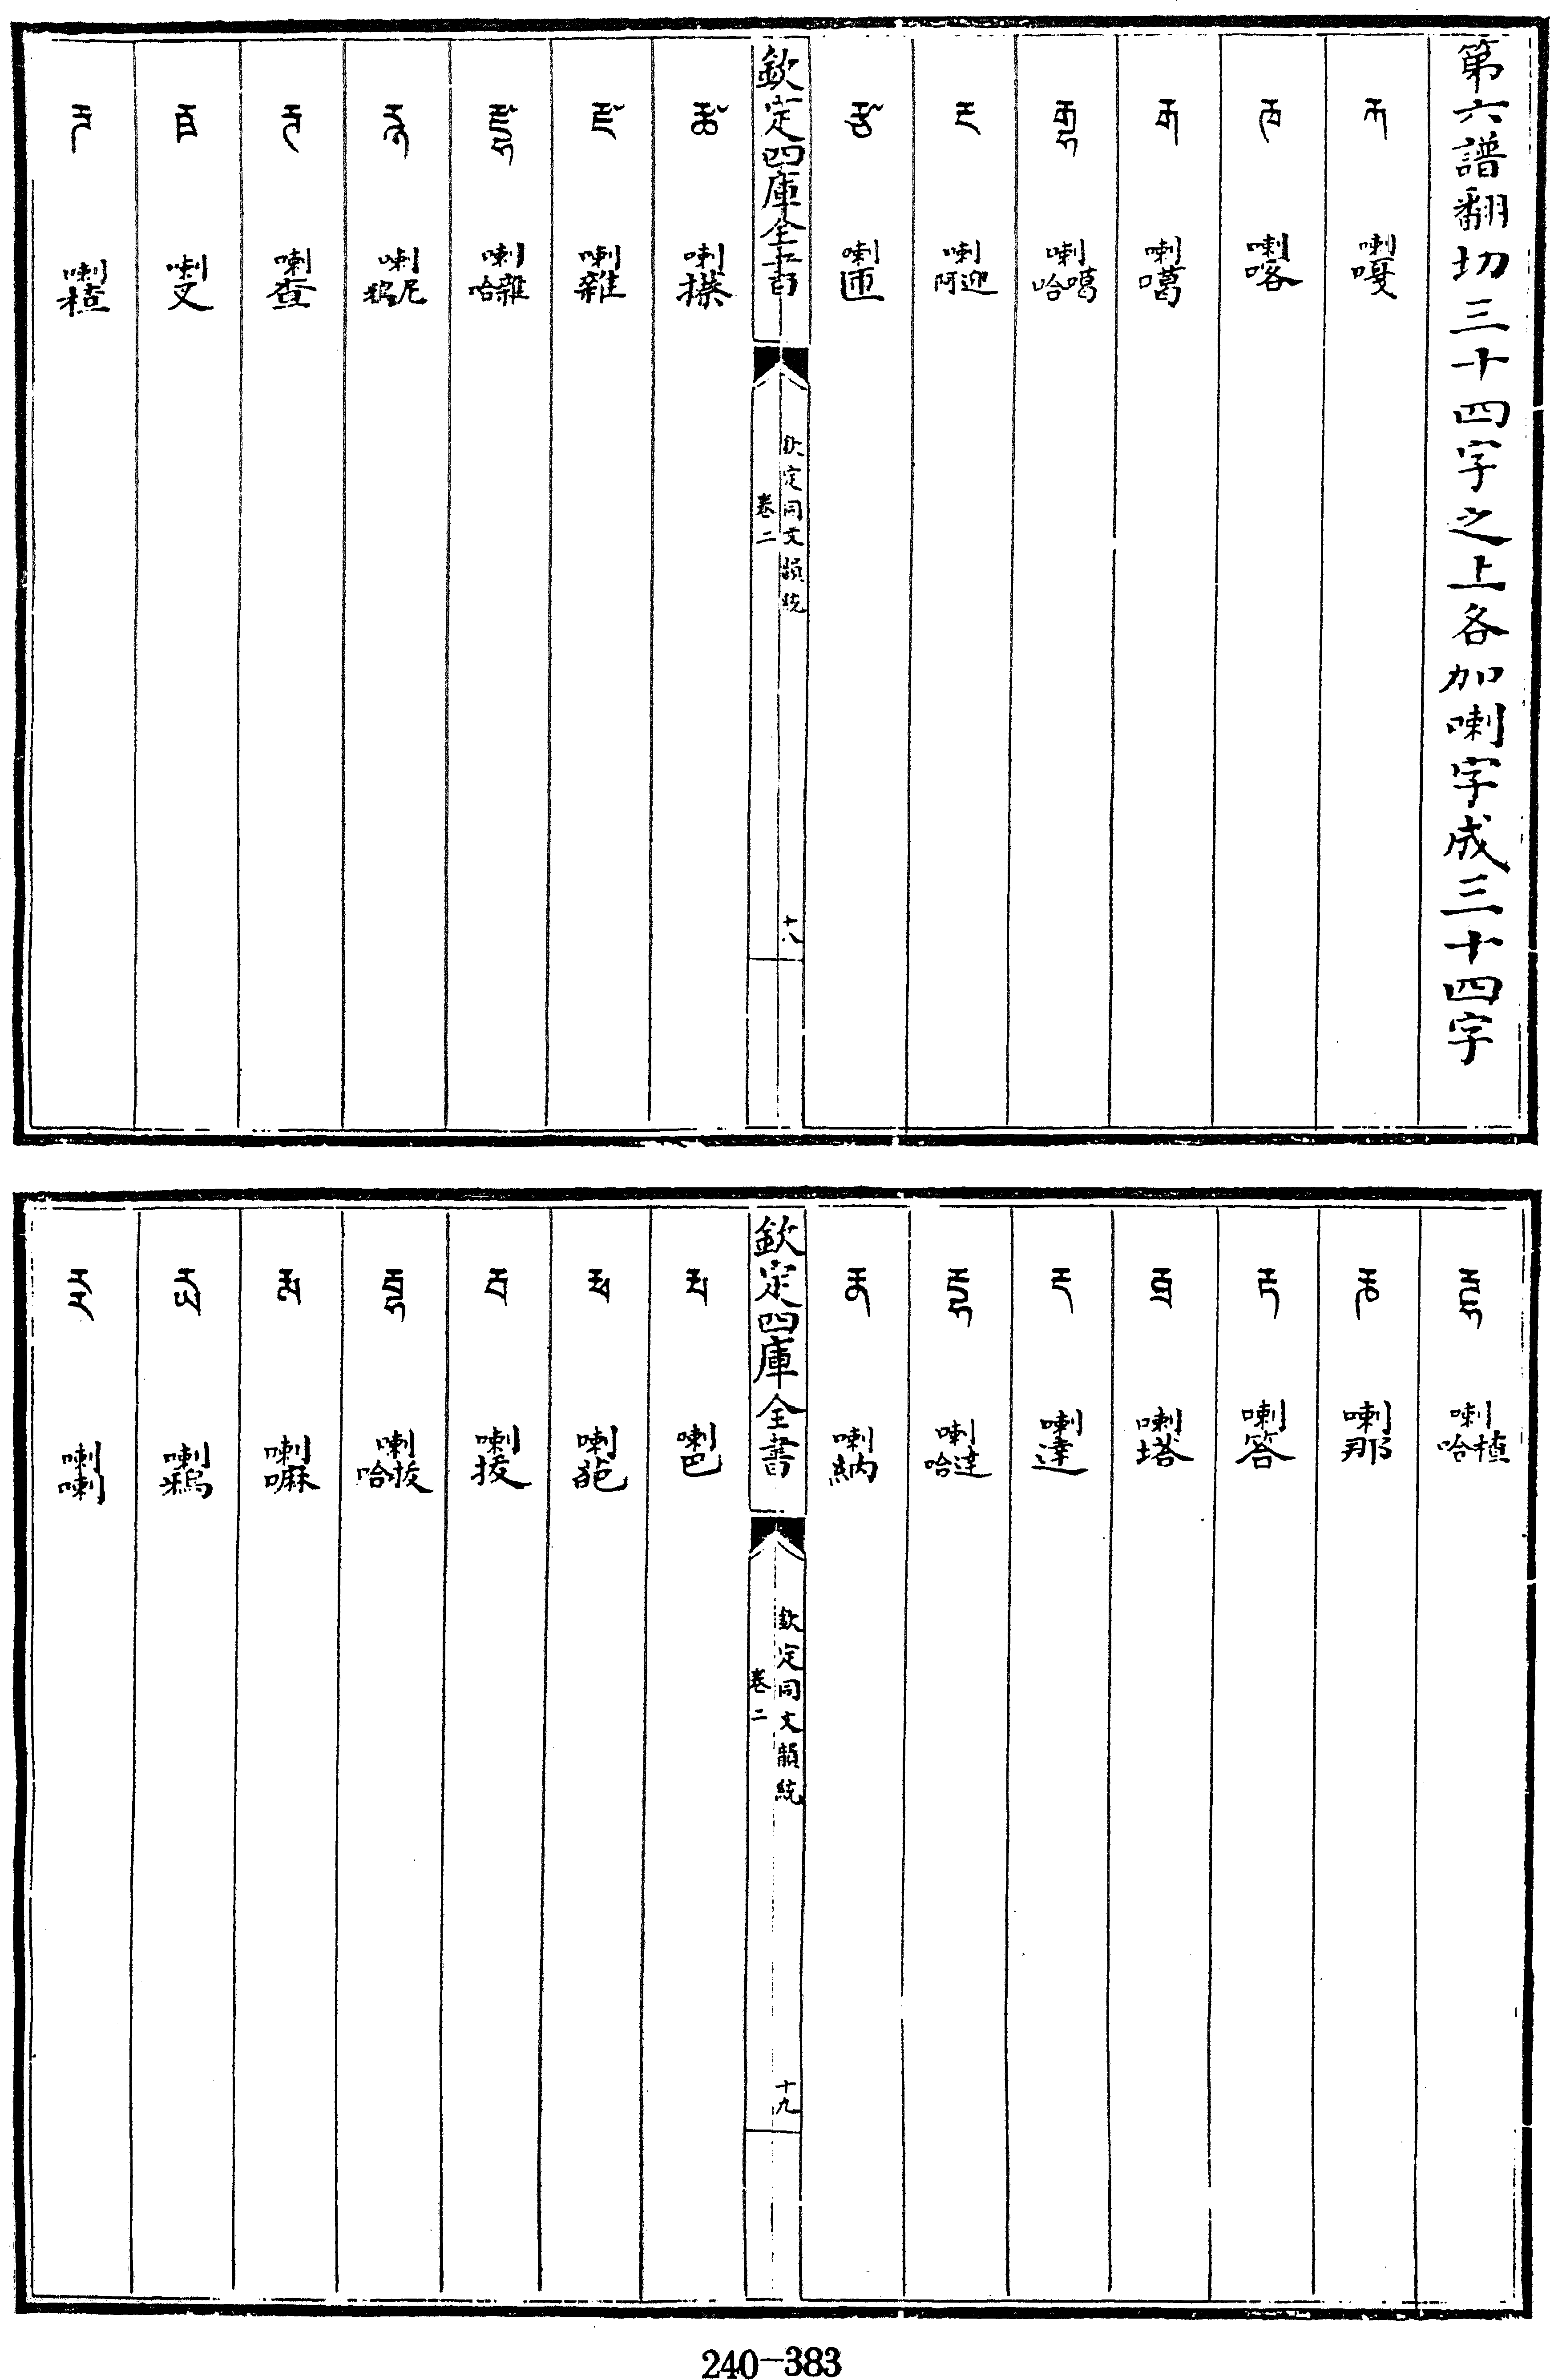 第六譜翻切三十四字之上各加喇字成三十四字
རྐ 喇嘎
རྑ 喇喀
རྒ 喇噶
རྒྷ 喇噶哈
རྔ 喇迎阿
རྩ 喇匝
欽定四庫全書
欽定同文韻統
卷二
十八
རྪ 喇攃
རྫ 喇雜
རྫྷ 喇雜哈
རྙ 喇尼鴉
རྚ 喇查
རྛ 喇叉
རྜ 喇楂
རྜྷ 喇楂哈
རྞ 喇那
རྟ 喇答
རྠ 喇塔
རྡ 喇達
རྡྷ 喇達哈
རྣ 喇納
欽定四庫全書
欽定同文韻統
卷二
十九
རྤ 喇巴
རྥ 喇葩
རྦ 喇拔
རྦྷ 喇拔哈
རྨ 喇嘛
རྱ 喇鴉
རྲ 喇喇
240-383